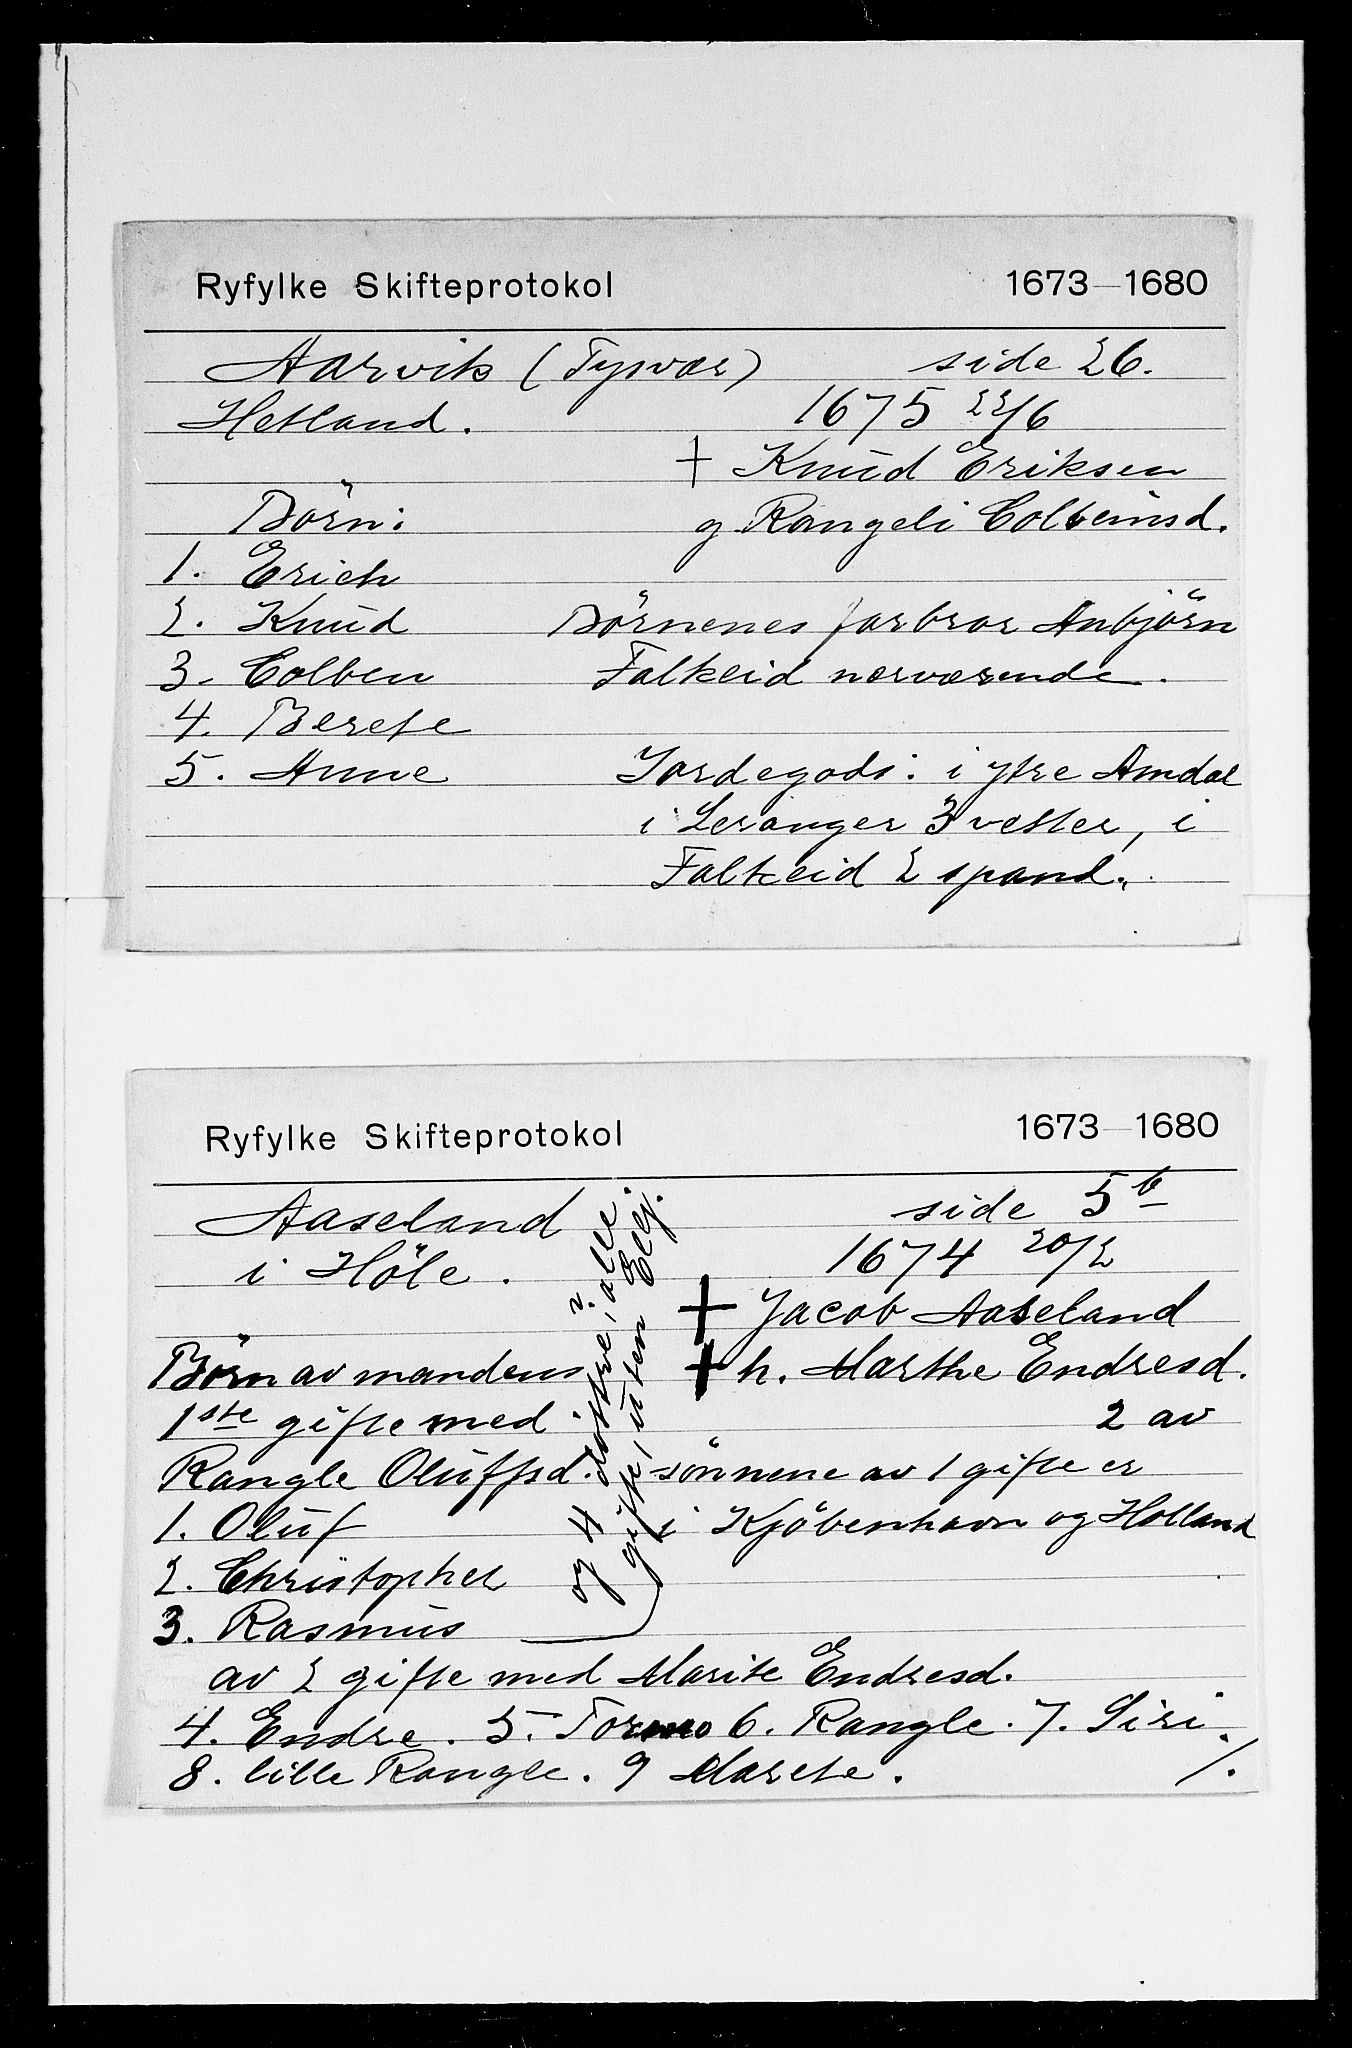 Ryfylke Skifteprotokol 1673—1680
Aarvik (Tysvær) side 26.
Hetland. 1675 22/6
† Knud Eriksen
Børn: og Rangeli Colbeinsd.
1. Erich
2. Knud Börnenes farbror Anbjörn
3. Colben Falkeid nærværende.
4. Berete
5. Anne Jordegods: i ytre Amdal
i Leranger 3 vetter, i
Falkeid 2 spand.
Ryfylke Skifteprotokol 1673—1680
Aaseland side 5b
i Höle. 1674 20/2
† Jacob Aaseland
Börn av mandens † h. Marthe Endresd.
1ste gifte med 2 av
Rangle Oluffsd. sönnene av 1 gifte er
1. Oluf i Kjöbenhavn og Holland
2. Christopher
3. Rasmus
og 4 döttre, alle
gifte, uten Elij.
av 2 gifte med Marite Endresd.
4. Endre. 5. Tormo 6. Rangle. 7. Siri.
8. lille Rangle. 9 Marete. /.